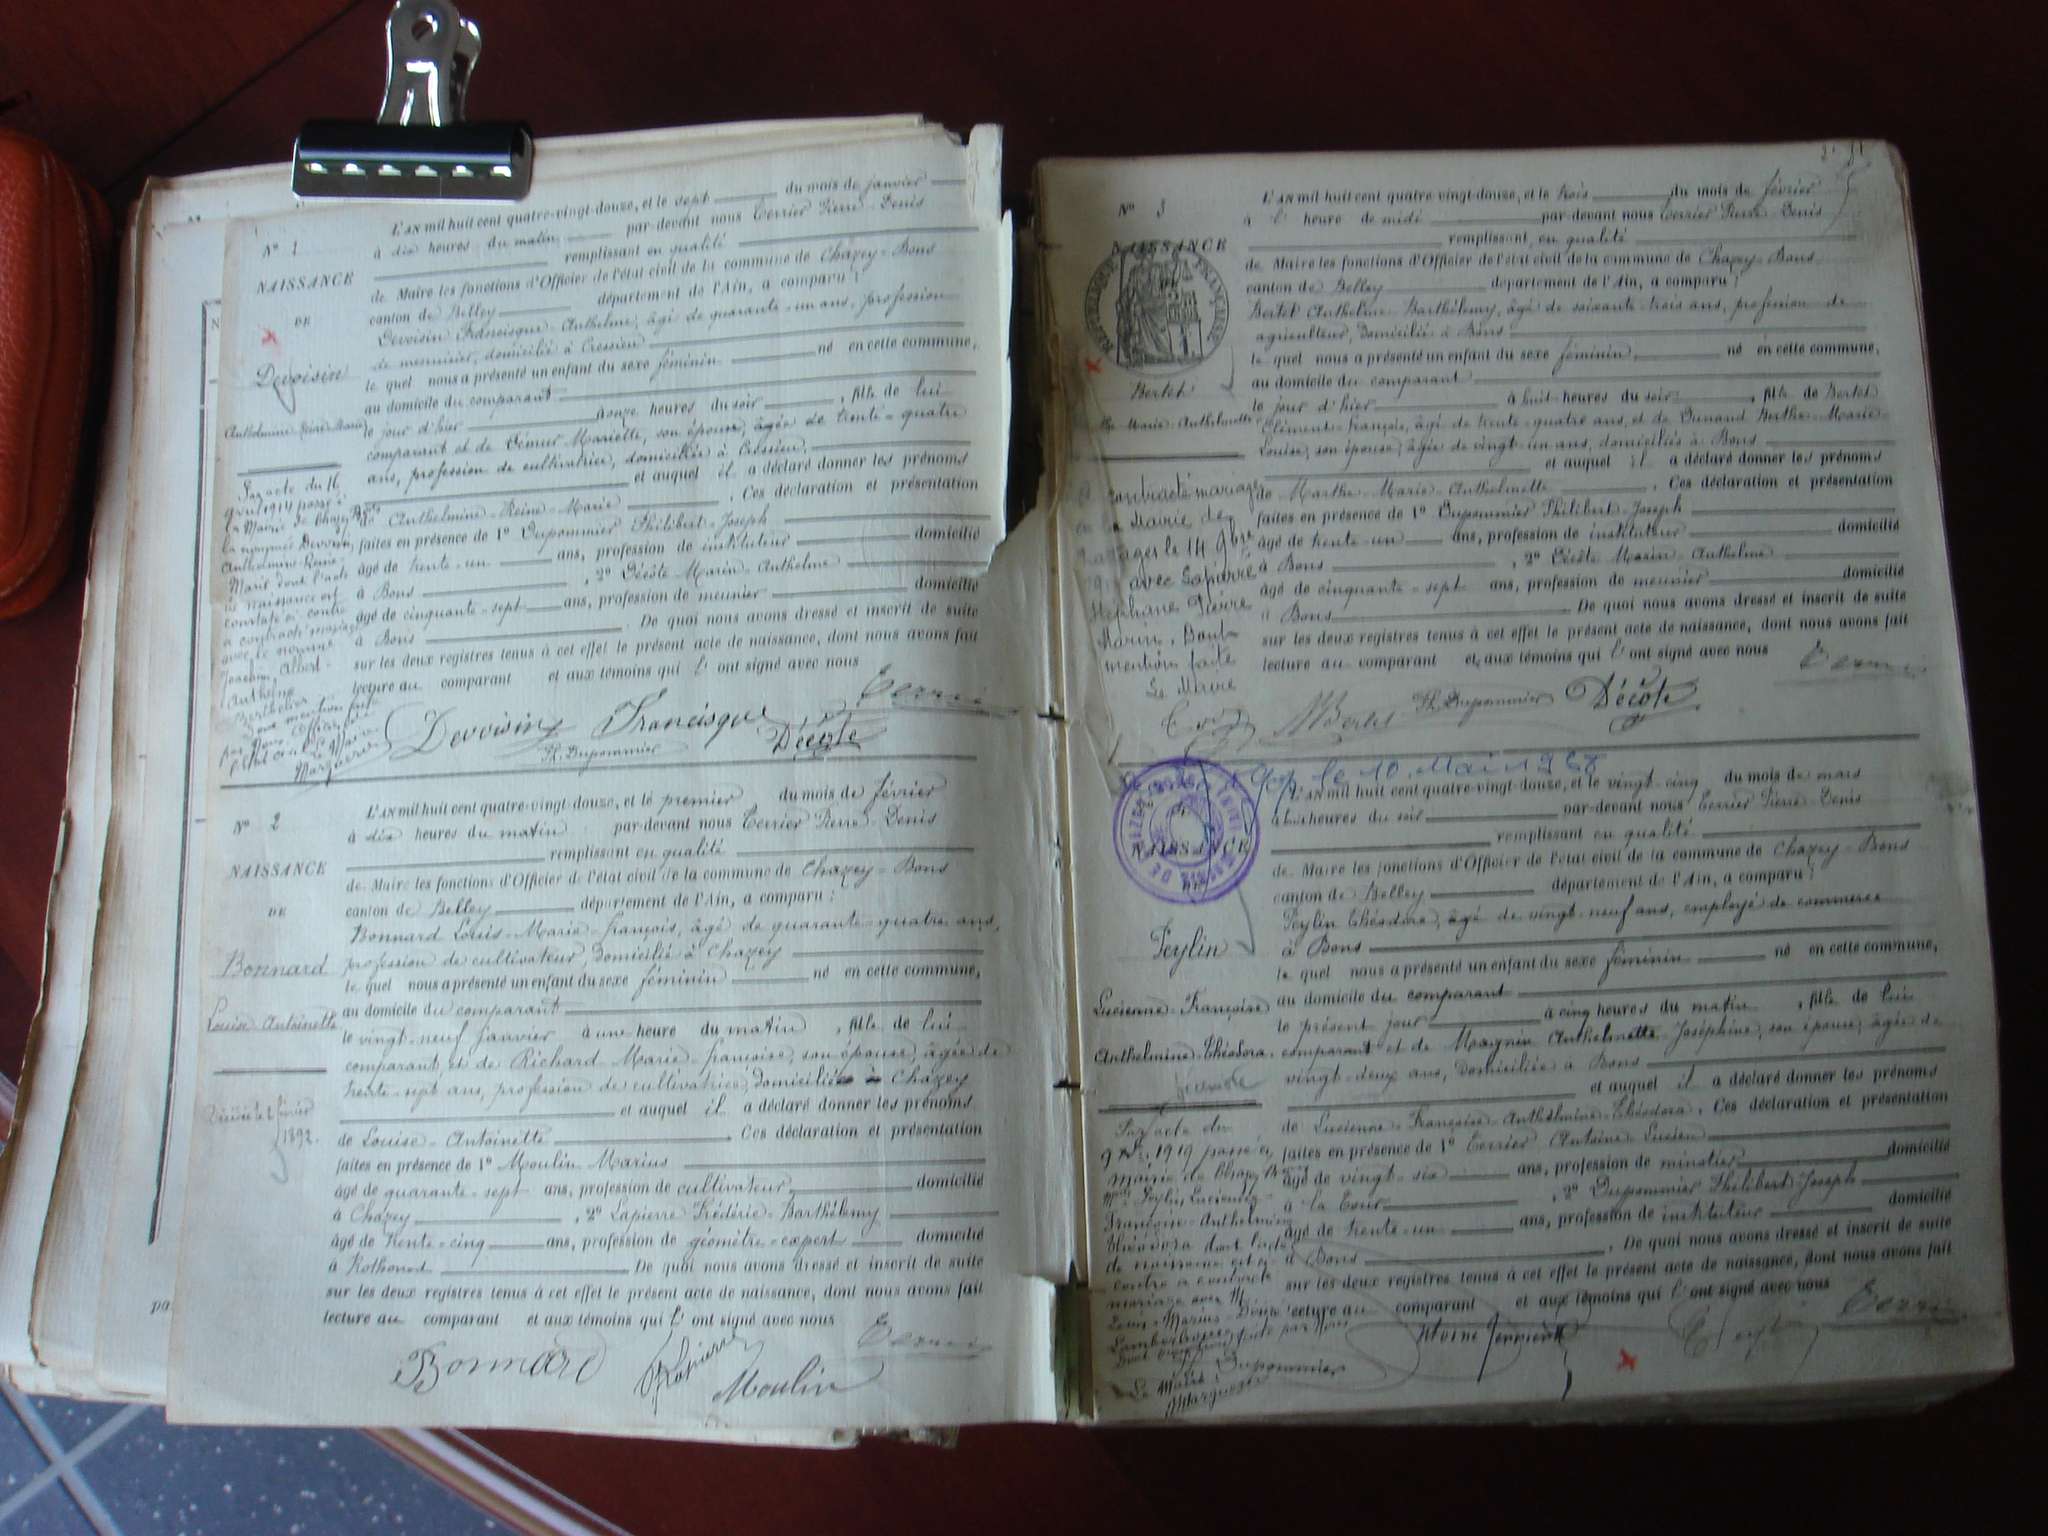 L'AN mil huit cent quatre-vingt-douze, et le sept du mois de janvier
à dix heures du matin par-devant nous Terrier Pierre-Denis
Nº 1
remplissant en qualité
NAISSANCE
de Maire les fonctions d'Officier de l'état civil de la commune de Chazey-Bons
canton de Belley département de l'Ain, a comparu :
DE
Devoisin Francisque-Anthelme, âgé de quarante-un ans, profession
de meunier, domicilié à Cressieu
Devoisin
le quel nous a présenté un enfant du sexe féminin né en cette commune,
au domicile du comparant
Anthelmine-Reine-Marie
le jour d'hier à onze heures du soir, fille de lui
comparant et de Démur Mariette, son épouse, âgée de trente-quatre
ans, profession de cultivatrice, domiciliée à Cressieu,
et auquel il a déclaré donner les prénoms
de Anthelmine-Reine-Marie . Ces déclaration et présentation
faites en présence de 1º Dupommier Philibert-Joseph
âgé de trente-un ans, profession de instituteur domicilié
à Bons , 2º Décôte Marin-Anthelme
âgé de cinquante-sept ans, profession de meunier domicilié
à Bons . De quoi nous avons dressé et inscrit de suite
sur les deux registres tenus à cet effet le présent acte de naissance, dont nous avons fait
lecture au comparant et aux témoins qui l'ont signé avec nous
Par acte du 16
avril 1914 passé à
la Mairie de Chazey-Bons
la nommée Devoisin
Anthelmine-Reine
Marie dont l'acte
de naissance est
constaté ci-contre
a contracté mariage
avec le nommé
Joachim, Albert
Anthelme
Berthelier
Dont mention faite
par Nous Officier de
l'Etat civil
Le Maire
Margueron
Devoisin Francisque
Décôte
Ph. Dupommier
Terrier
L'AN mil huit cent quatre-vingt-douze, et le premier du mois de février
Nº 2
à dix heures du matin par-devant nous Terrier Pierre-Denis
remplissant en qualité
NAISSANCE
de Maire les fonctions d'Officier de l'état civil de la commune de Chazey-Bons
DE
canton de Belley département de l'Ain, a comparu :
Bonnard Louis-Marie-François, âgé de quarante-quatre ans,
Bonnard
profession de cultivateur, domicilié à Chazey
le quel nous a présenté un enfant du sexe féminin né en cette commune,
Louise-Antoinette
au domicile du comparant
le vingt-neuf janvier à une heure du matin, fille de lui
comparant, et de Richard Marie-Françoise, son épouse, âgée de
trente-sept ans, profession de cultivatrice, domiciliée à Chazey
et auquel il a déclaré donner les prénoms
Décédée le 2 février
1892.
de Louise-Antoinette . Ces déclaration et présentation
faites en présence de 1º Moulin Marius
âgé de quarante-sept ans, profession de cultivateur domicilié
à Chazey , 2º Lapierre Frédéric-Barthélemy
âgé de trente-cinq ans, profession de géomètre-expert domicilié
à Rothonod De quoi nous avons dressé et inscrit de suite
sur les deux registres tenus à cet effet le présent acte de naissance, dont nous avons fait
lecture au comparant et aux témoins qui l'ont signé avec nous
Terrier
Bonnard
Lapierre
Moulin
L'AN mil huit cent quatre-vingt-douze, et le trois du mois de février
Nº 3
à l'heure de midi par-devant nous Terrier Pierre-Denis
NAISSANCE
RÉPUBLIQUE FRANÇAISE
remplissant en qualité
de Maire les fonctions d'Officier de l'état civil de la commune de Chazey-Bons
canton de Belley département de l'Ain, a comparu :
Bertet Anthelme-Barthélemy, âgé de soixante-trois ans, profession de
agriculteur, domicilié à Bons
le quel nous a présenté un enfant du sexe féminin, né en cette commune,
Bertet
au domicile du comparant
le jour d'hier à huit heures du soir, fille de Bertet
Marie-Anthelmette
Clément-François, âgé de trente-quatre ans, et de Dunand Berthe-Marie-
Louise, son épouse, âgée de vingt-un ans, domiciliés à Bons
et auquel il a déclaré donner les prénoms
de Marthe-Marie-Anthelmette . Ces déclaration et présentation
faites en présence de 1º Dupommier Philibert-Joseph
âgé de trente-un ans, profession de instituteur domicilié
à Bons , 2º Décôte Marin-Anthelme
âgé de cinquante-sept ans, profession de meunier domicilié
à Bons . De quoi nous avons dressé et inscrit de suite
sur les deux registres tenus à cet effet le présent acte de naissance, dont nous avons fait
lecture au comparant et aux témoins qui l'ont signé avec nous
contracté mariage
Mairie de
le 14 9bre
avec Lapierre
Stéphane Pierre
Marin. Dont
mention faite
Le Maire
Terrier
Bertet
Ph. Dupommier
Décôte
le 10 Mai 1968
L'AN mil huit cent quatre-vingt-douze, et le vingt-cinq du mois de mars
heures du soir par-devant nous Terrier Pierre-Denis
NAISSANCE
remplissant en qualité
de Maire les fonctions d'Officier de l'état civil de la commune de Chazey-Bons
canton de Belley département de l'Ain, a comparu :
Feylin Théodore, âgé de vingt-neuf ans, employé de commerce
Feylin
à Bons
le quel nous a présenté un enfant du sexe féminin né en cette commune,
au domicile du comparant
Lucienne-Françoise
le présent jour à cinq heures du matin, fille de lui
Anthelmine-Théodora
comparant et de Magnin Anthelmette-Joséphine, son épouse, âgée de
vingt-deux ans, domiciliée à Bons
et auquel il a déclaré donner les prénoms
de Lucienne-Françoise-Anthelmine-Théodora. Ces déclaration et présentation
faites en présence de 1º Terrier Antoine-Lucien
âgé de vingt-six ans, profession de minotier domicilié
à la Cour , 2º Dupommier Philibert-Joseph
âgé de trente-un ans, profession de instituteur domicilié
à Bons . De quoi nous avons dressé et inscrit de suite
sur les deux registres tenus à cet effet le présent acte de naissance, dont nous avons fait
lecture au comparant et aux témoins qui l'ont signé avec nous
Par acte du
1919 passé à
Mairie de Chazey-B
Feylin Lucienne
Françoise-Anthelmine
Théodora dont l'acte
de naissance est ci-
contre a contracté
mariage avec M
Louis-Marius-Désiré
fait par Nous
Le Maire
Margueron
Dupommier
Antoine Terrier
Feylin
Terrier